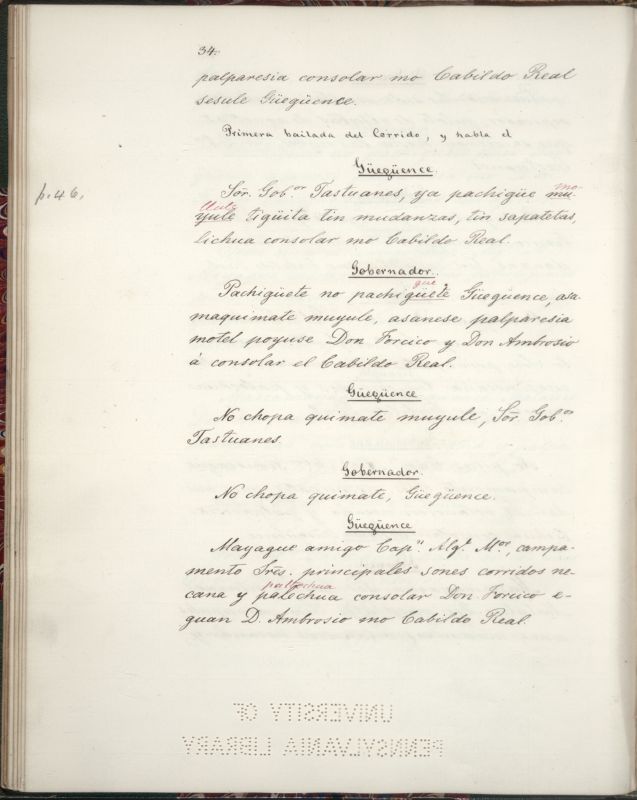 34.
palparesia consolar mo Cabildo Real
sesule Güegüence.
Primera bailada del Corrido, y habla el
Güegüence.
p. 46.
Sor. Gobor Tastuanes, ya pachigüe mu- mo-
yule tigüita tin mudanzas, tin sapatetas,
lichua consolar mo Cabildo Real.
Gobernador.
güe
Pachigüete no pachigüete Güegüence, asa-
maquimate muyule, asanese palparesia
motel poyuse Don Forcico y Don Ambrosio
á consolar el Cabildo Real.
Güegüence
No chopa quimate muyule, Sor. Gobor
Tastuanes.
Gobernador.
No chopa quimate, Güegüence.
Güegüence
Mayague amigo Capn. Algl. Mor., campa-
mento Srês. principales sones corridos ne-
palpechua
cana y palechua consolar Don Forcico e-
guan D. Ambrosio mo Cabildo Real.
UNIVERSITY OF
PENNSYLVANIA LIBRARY